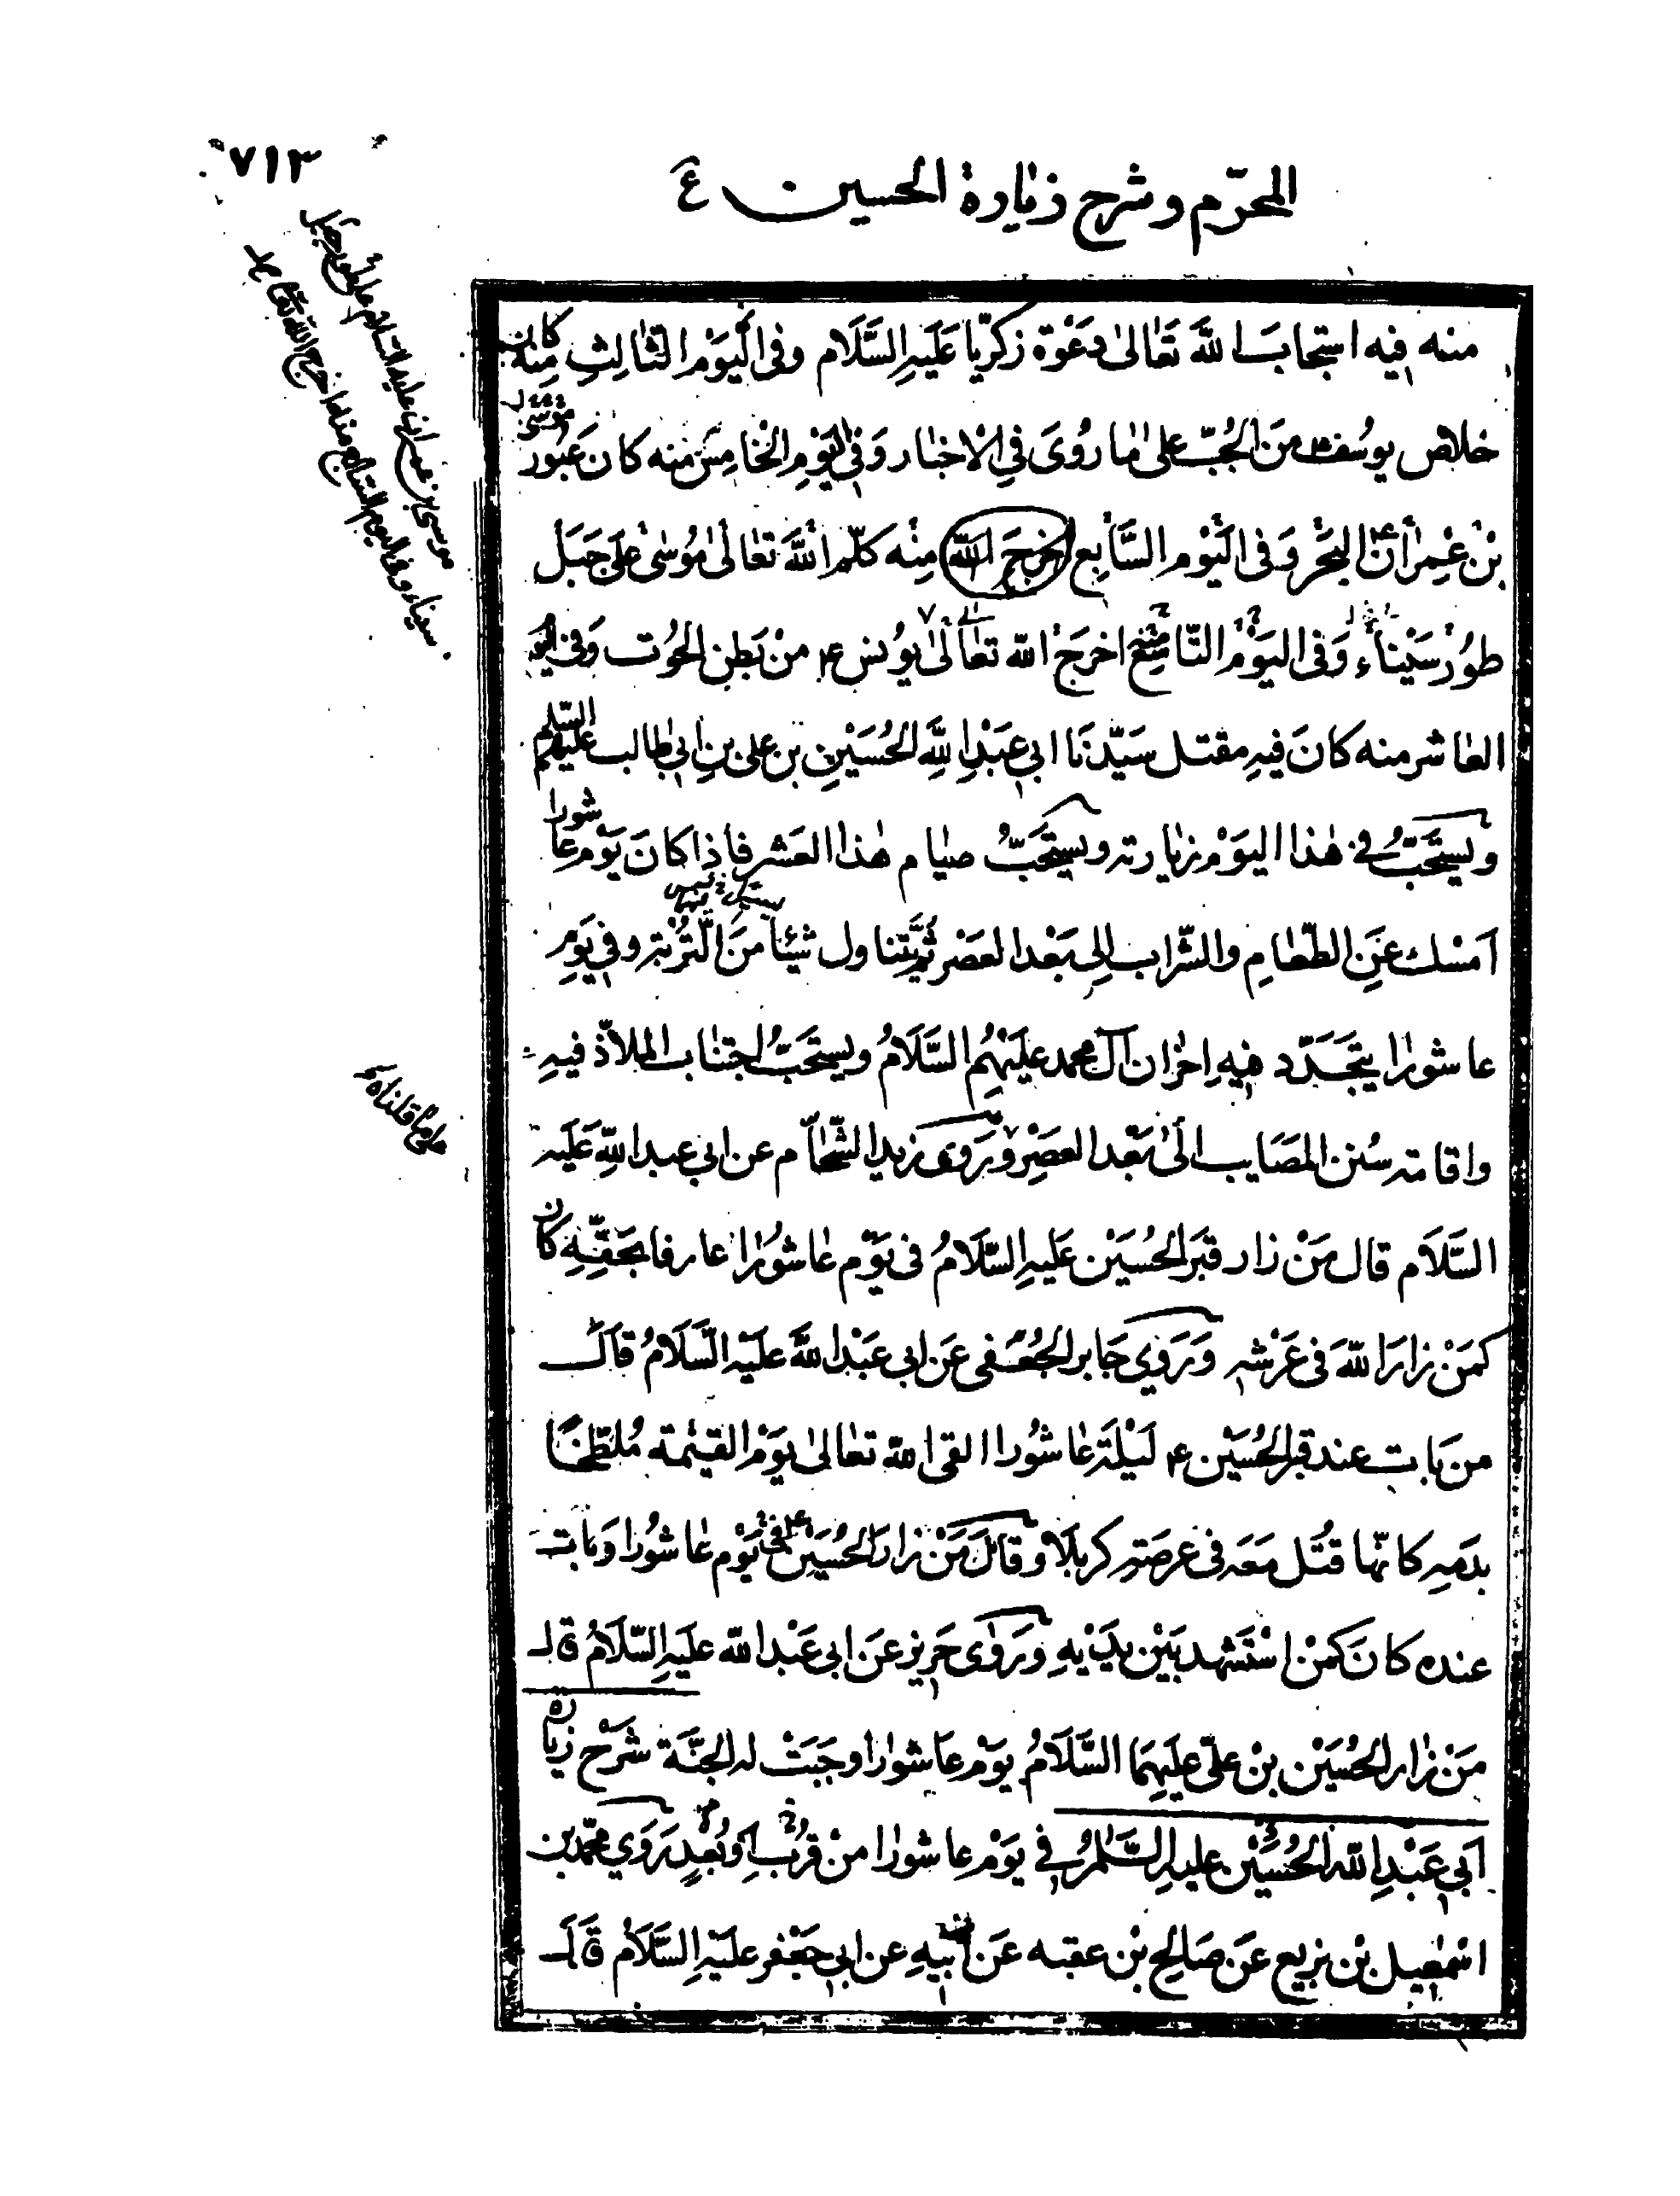 ٧١٣
المحرّم وشرح زيارة الحسين ع
منه فيه استجاب اللهَ تَعَالىٰ دَعْوَة زَكرِيّا عَلَيهِ السَّلَام وفى اليَوْم الثّالِثِ مِنه كان
خلاص يوسُف ع منَ الجُبّ علىٰ مٰا رُوِىَ فِي الاخبٰار وَفِي اليَوْمِ الْخامِسِ منه كان عبُور موسى
بْن عِمرٰان ع البَحْر وَفى اليَوْم السّابِع اخرجَ الله مِنْه كلّم اللهَ تعٰالىٰ مُوْسىٰ عَلىٰ جَبَل
طُوْر سَيْنٰاء وَفى اليَوْم التّاسِع اخرَجَ الله تعٰالىٰ يوُنس ع منْ بَطنِ الحوُت وَفى اليَوم
العٰاشر منه كانَ فيهِ مقتل سَيّدنَا ابي عَبْدِ اللهِ الحُسَيْنِ بن على بنِ ابى طٰالب عليهم السّلم
ويستحَبُّ في هٰذا اليَوْم زيٰارته ويستحَبّ صيٰام هٰذا العَشر فاذا كانَ يَوْم عاشورا
اَمْسك عَنِ الطّعٰامِ والشّرٰاب الى بَعْد العَصْر ثُمَّ يَتناول شيئًا منَ التُّرْبة وفي يَوْمِ
عاشورٰا يتجَدّد فيهِ احزٰان آل محمد عليْهِمُ السَّلَامُ ويستحَبّ اجتناب الملاذّ فيهِ
واقامته سُنن المصَايب الىٰ بَعْد العَصْرِ ورَوىٰ زيد الشّحّام عن ابى عبد اللّهِ عَلَيه
السَّلَام قال مَنْ زار قبرَ الحُسَيْن عَليهِ السَّلَامُ فى يَوْم عٰاشُورٰا عارفا بحَقّهِ كان
كمَنْ زارَ اللهَ فى عَرْشه وَرَوي جَابر الجُعْفى عَن ابى عَبْد اللهَّ علَيْه السَّلَامُ قال
من بَات عند قبر الحُسَيْن ع لَيْلَة عٰاشُورا القى الله تعٰالىٰ يَوْم القيٰمة مُلطّخًا
بدَمِهِ كانّما قُتل مَعَه فى عرصَته كربلا وقالَ مَنْ زارَ الحُسَيْن ع في يَوْم عٰاشُورا وَبات
عنده كانَ كمنْ اسْتَشهد بَيْن يدَيْهِ ورَوىٰ حَريز عَن ابى عَبْد الله عليَهِ السَّلَامُ قال
مَنْ زٰار الحُسَيْن بنْ علىّ علَيهِمَا السَّلَامُ يَوْم عاشورٰا وجَبَتْ له الجَنَّة شَرْح زيارة
اَبي عَبْدِ اللهِ الحُسَيْن عليهِ السَّلٰامُ في يَوْم عاشورٰا منْ قربٍ اَو بُعْدٍ رَوي محمّد بن
اسْمٰعيل بْن بزيع عَن صَالحِ بْن عقبه عَن اَبيهِ عن ابى جَعْفر علَيْهِ السَّلَامُ قال
موسى بن عمران عليه السّلام على طور جبل
سيناء وفي اليوم التاسع منه اخرج الله تعالى
على ما قلناه